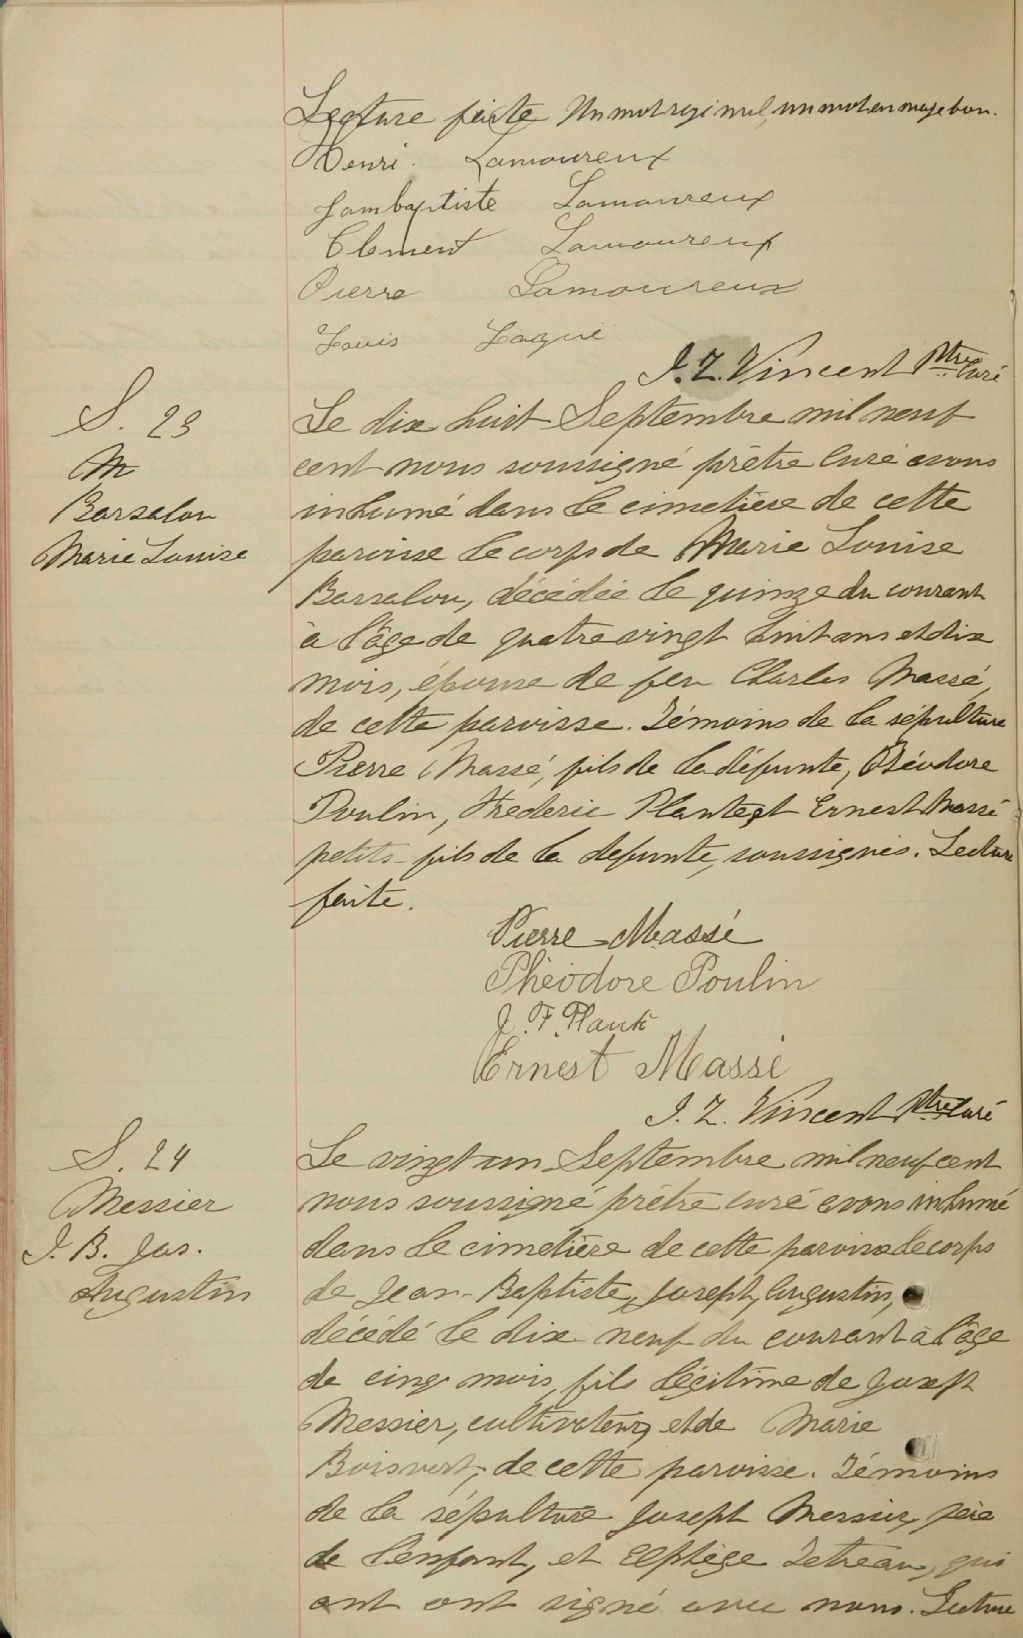 Lecture faite Un mot rayé nul, un mot en marge bon.
Henri Lamoureux
Jambaptiste Lamoureux
Clement Lamoureux
Pierre Lamoureux
Louis Laque
J. Z. Vincent Ptre Curé
S. 23
M
Barsalou
Marie Louise
Le dix huit Septembre mil neuf
cent nous soussigné prêtre curé avons
inhumé dans le cimetière de cette
paroisse le corps de Marie Louise
Barsalou, décédée le quinze du courant
à l'âge de quatre vingt huit ans et dix
mois, épouse de feu Charles Massé,
de cette paroisse. Témoins de la sépulture
Pierre Massé, fils de la défunte, Théodore
Poulin, Frederic Plante et Ernest Massé
petits-fils de la defunte, soussignés. Lecture
faite.
Pierre Massé
Théodore Poulin
J. F. Plante
Ernest Massé
J. Z. Vincent Ptre Curé
S. 24
Messier
J. B. Jos.
Augustin
Le vingt un Septembre mil neuf cent
nous soussigné prêtre curé avons inhumé
dans le cimetière de cette paroisse le corps
de Jean-Baptiste, Joseph, Augustin,
décédé le dix neuf du courant à l'âge
de cinq mois, fils légitime de Joseph
Messier, cultivateur, et de Marie
Boisvert, de cette paroisse. Témoins
de la sépulture Joseph Messier, père
de l'enfant, et Elphège Tetreau, qui
ont ont signé avec nous. Lecture